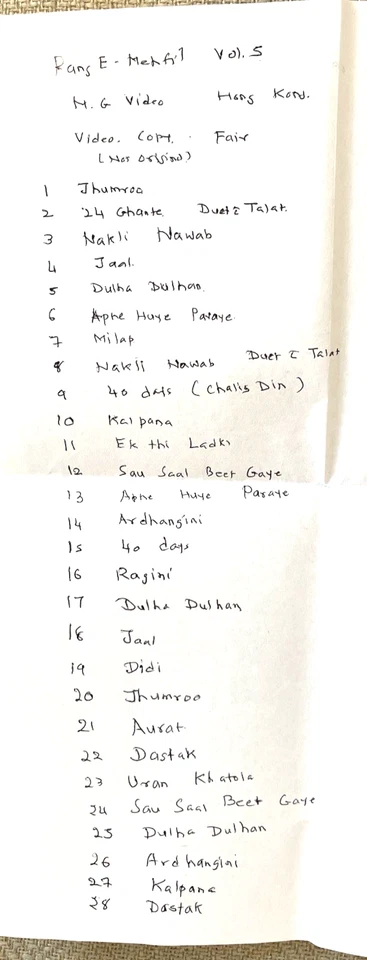 Rang E - Mehfil Vol. 5
M. G Video Hong Kong.
Video. Copy. - Fair
(Not original)
1 Jhumroo
2 24 Ghante Duet c̄ Talat.
3 Nakli Nawab
4 Jaal.
5 Dulha Dulhan.
6 Apne Huye Paraye.
7 Milap
8 Nakli Nawab Duet c̄ Talat
9 40 days (Chalis Din)
10 Kalpana
11 Ek thi Ladki
12 Sau Saal Beet Gaye
13 Apne Huye Paraye
14 Ardhangini
15 40 days
16 Ragini
17 Dulha Dulhan
18 Jaal
19 Didi
20 Jhumroo
21 Aurat.
22 Dastak
23 Uran Khatola
24 Sau Saal Beet Gaye
25 Dulha Dulhan
26 Ardhangini
27 Kalpana
28 Dastak